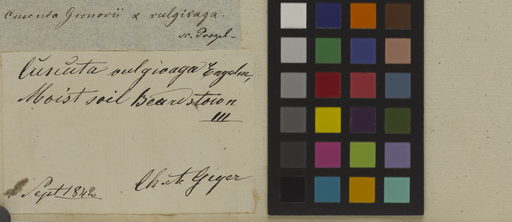 Cuscuta Gronovii α vulgivaga.
sc. Progel.
Cuscuta vulgivaga Engelm,
Moist soil Beardstown
Ill
Sept 1842 Ch. A. Geyer